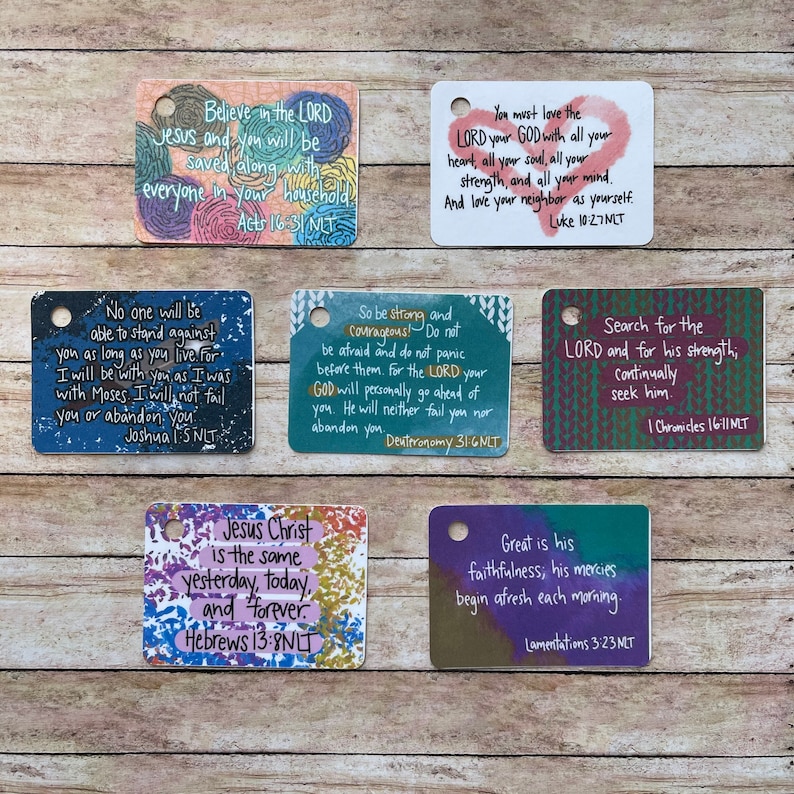 Believe in the LORD
Jesus and you will be
saved, along with
everyone in your household.
Acts 16:31 NLT
You must love the
LORD your GOD with all your
heart, all your soul, all your
strength, and all your mind.
And love your neighbor as yourself.
Luke 10:27 NLT
No one will be
able to stand against
you as long as you live. For
I will be with you as I was
with Moses. I will not fail
you or abandon you.
Joshua 1:5 NLT
So be strong and
courageous! Do not
be afraid and do not panic
before them. For the LORD your
GOD will personally go ahead of
you. He will neither fail you nor
abandon you.
Deuteronomy 31:6 NLT
Search for the
LORD and for his strength;
continually
seek him.
1 Chronicles 16:11 NLT
Jesus Christ
is the same
yesterday, today,
and forever.
Hebrews 13:8 NLT
Great is his
faithfulness; his mercies
begin afresh each morning.
Lamentations 3:23 NLT